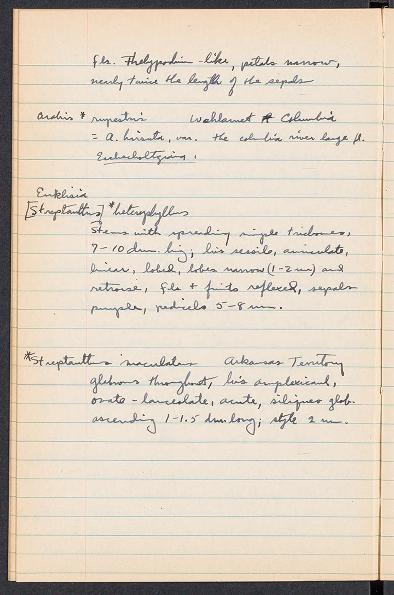 fls. Thelypodium-like, petals narrow,
nearly twice the length of the sepals
Arabis * rupestris Wahlamet & Columbia
= A. hirsuta, var. the columbia river large fl.
Eschscholtziana.
Euklisia
[Streptanthus] * heterophyllus
Stems with spreading simple trichomes,
7-10 dm. hig; lvs sessile, auriculate,
linear, lobed, lobes narrow (1-2 mm) and
retrorse, fls + fruits reflexed, sepals
purple, pedicels 5-8 mm.
*Streptanthus maculatus Arkansas Territory
glabrous throughout, lvs amplexicaul,
ovate-lanceolate, acute, siliques glab.
ascending 1-1.5 dm. long; style 2 mm.